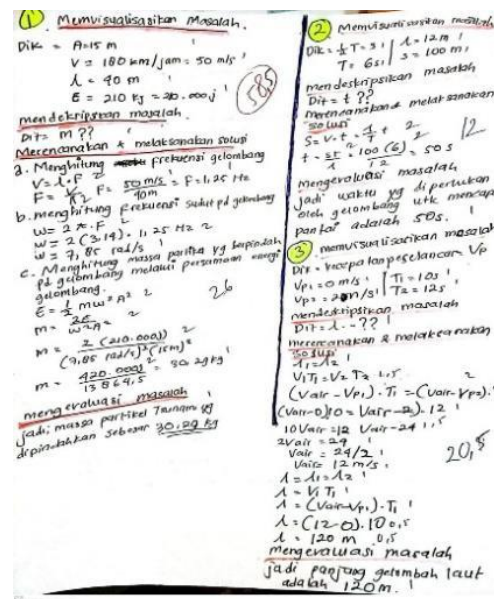 ① Memvisualisasikan Masalah.
Dik = A=15 m
V = 180 km/jam = 50 m/s
λ = 40 m
E = 210 kj = 210.000 j
58,5
mendeskripsikan masalah.
Dit = m ??
Merencanakan & melaksanakan solusi
a. Menghitung frekuensi gelombang
V = λ.F 2
F = V/λ 2 F = 50 m/s / 40m = F = 1,25 Hz
b. menghitung frekuensi sudut pd gelombang
ω = 2 π. F 2
ω = 2 (3,14). 1,25 Hz 2
ω = 7,85 rad/s
c. Menghitung massa partikel yg berpindah
pd gelombang melalui persamaan energi
gelombang.
E = 1/2 mω²A² 2
m = 2E / ω²A² 2
26
m = 2 (210.000j) / (7,85 rad/s)² (15m)² 2
m = 420.000j / 13864,5 = 30,29kg
mengevaluasi masalah
jadi massa partikel Tsunami yg
dipindahkan sebesar 30,29 kg
② Memvisualisasikan masalah
Dik = 1/2 T = 3s | λ = 12m
T = 6s | s = 100 m
mendeskripsikan masalah
Dit = t ??
merencanakan & melaksanakan
solusi
S = V.t = λ/T t 2
t = ST/λ = 100(6)/12 = 50 s
12
mengevaluasi masalah
jadi waktu yg diperlukan
oleh gelombang utk mencapai
pantai adalah 50s.
③ memvisualisasikan masalah
Dik = kecepatan peselancar Vp
Vp₁ = 0 m/s | T₁ = 10s
Vp₂ = 2 m/s | T₂ = 12s
mendeskripsikan masalah
Dit = λ..??
merencanakan & melaksanakan
solusi
λ₁ = λ₂
V₁T₁ = V₂T₂ 1,5
(Vair - Vp₁). T₁ = (Vair - Vp₂).
(Vair - 0)10 = Vair - 2). 12
10 Vair = 12 Vair - 24 1,5
2Vair = 24
Vair = 24/2
Vair = 12 m/s.
20,5
λ = λ₁ = λ₂
λ = V₁T₁
λ = (Vair - Vp₁). T₁
λ = (12-0).10 0,5
λ = 120 m 0,5
mengevaluasi masalah
jadi panjang gelombah laut
adalah 120m.